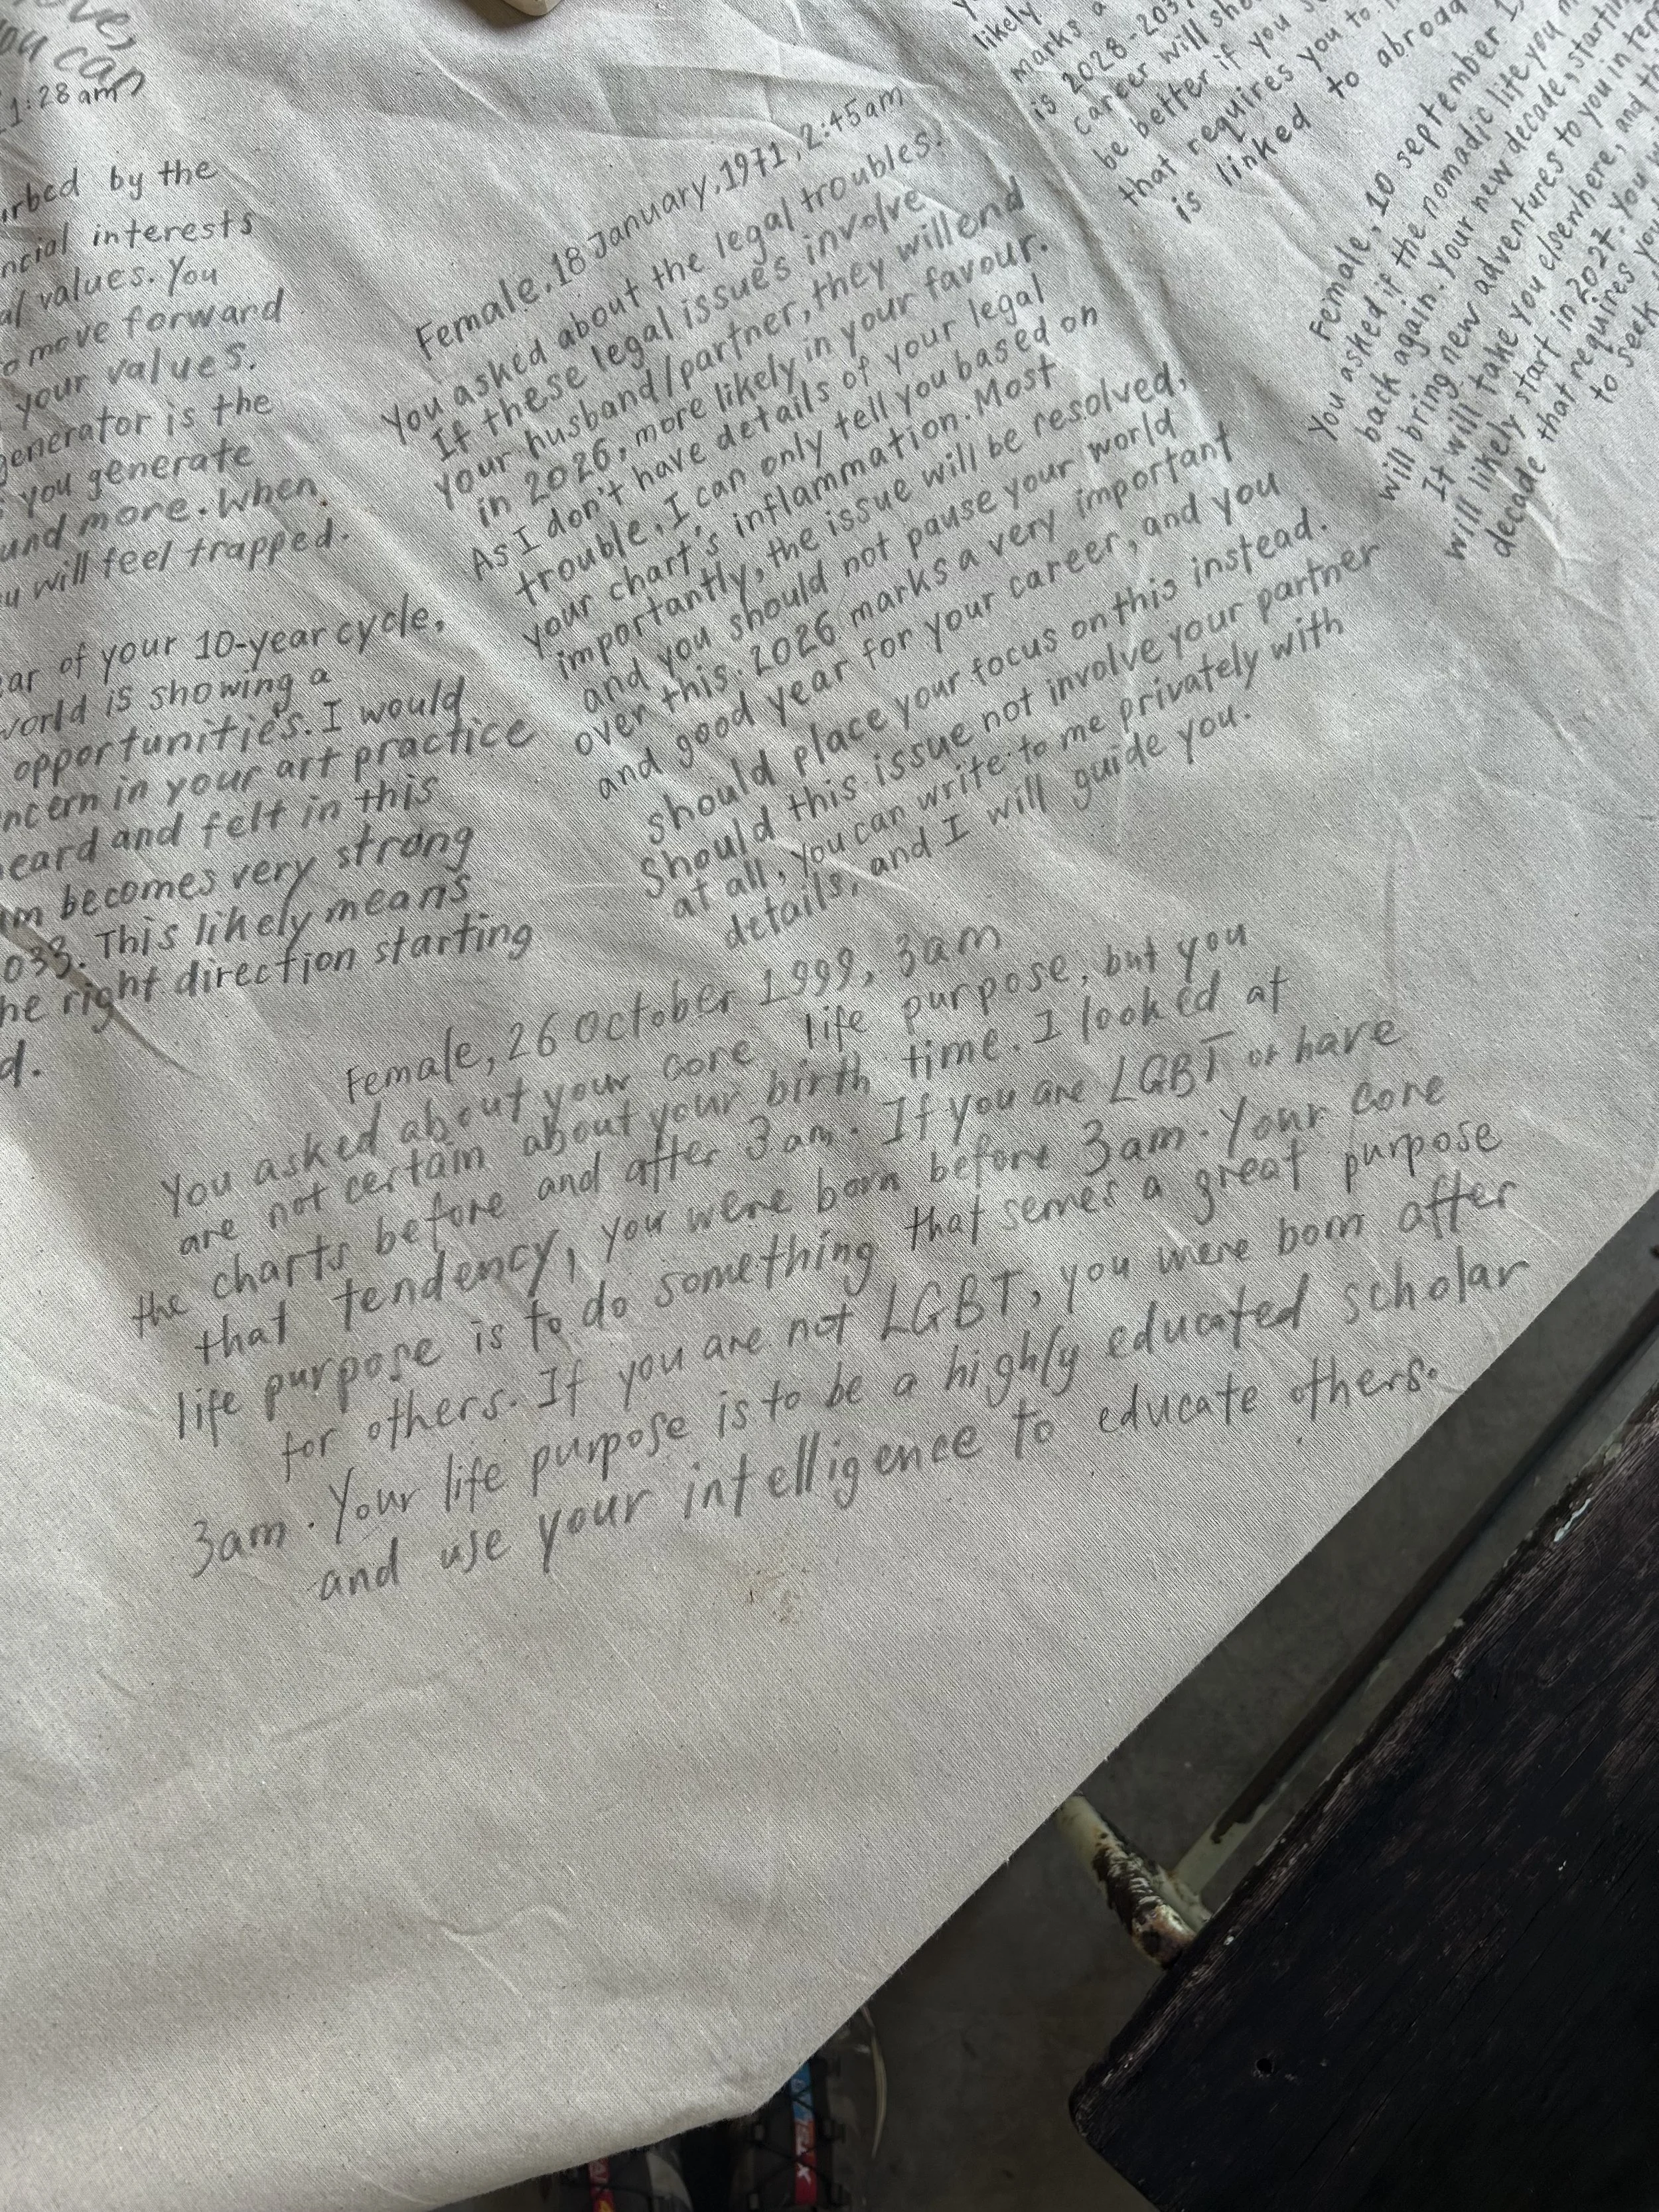 you can
1:28 am)
by the
interests
values. You
move forward
your values.
generator is the
you generate
and more. When
will feel trapped.
of your 10-year cycle,
world is showing a
opportunities. I would
in your art practice
heard and felt in this
becomes very strong
This likely means
the right direction starting
Female, 18 January, 1971, 2:45am
You asked about the legal troubles.
If these legal issues involve
your husband/partner, they will end
in 2026, more likely in your favour.
As I don't have details of your legal
trouble, I can only tell you based on
your chart's inflammation. Most
importantly, the issue will be resolved,
and you should not pause your world
over this. 2026 marks a very important
and good year for your career, and you
should place your focus on this instead.
Should this issue not involve your partner
at all, you can write to me privately with
details, and I will guide you.
likely
marks a
is 2028-203
career will
be better if you
that requires you to
is linked to abroad
Female, 10 september
You asked if the nomadic life you
back again. Your new decade, starting
will bring new adventures to you in
It will take you elsewhere, and
will likely start in 2027. You
decade that requires
to seek
Female, 26 October 1999, 3am
You asked about your core life purpose, but you
are not certain about your birth time. I looked at
the charts before and after 3am. If you are LGBT or have
that tendency, you were born before 3am. Your core
life purpose is to do something that serves a great purpose
for others. If you are not LGBT, you were born after
3am. Your life purpose is to be a highly educated scholar
and use your intelligence to educate others.